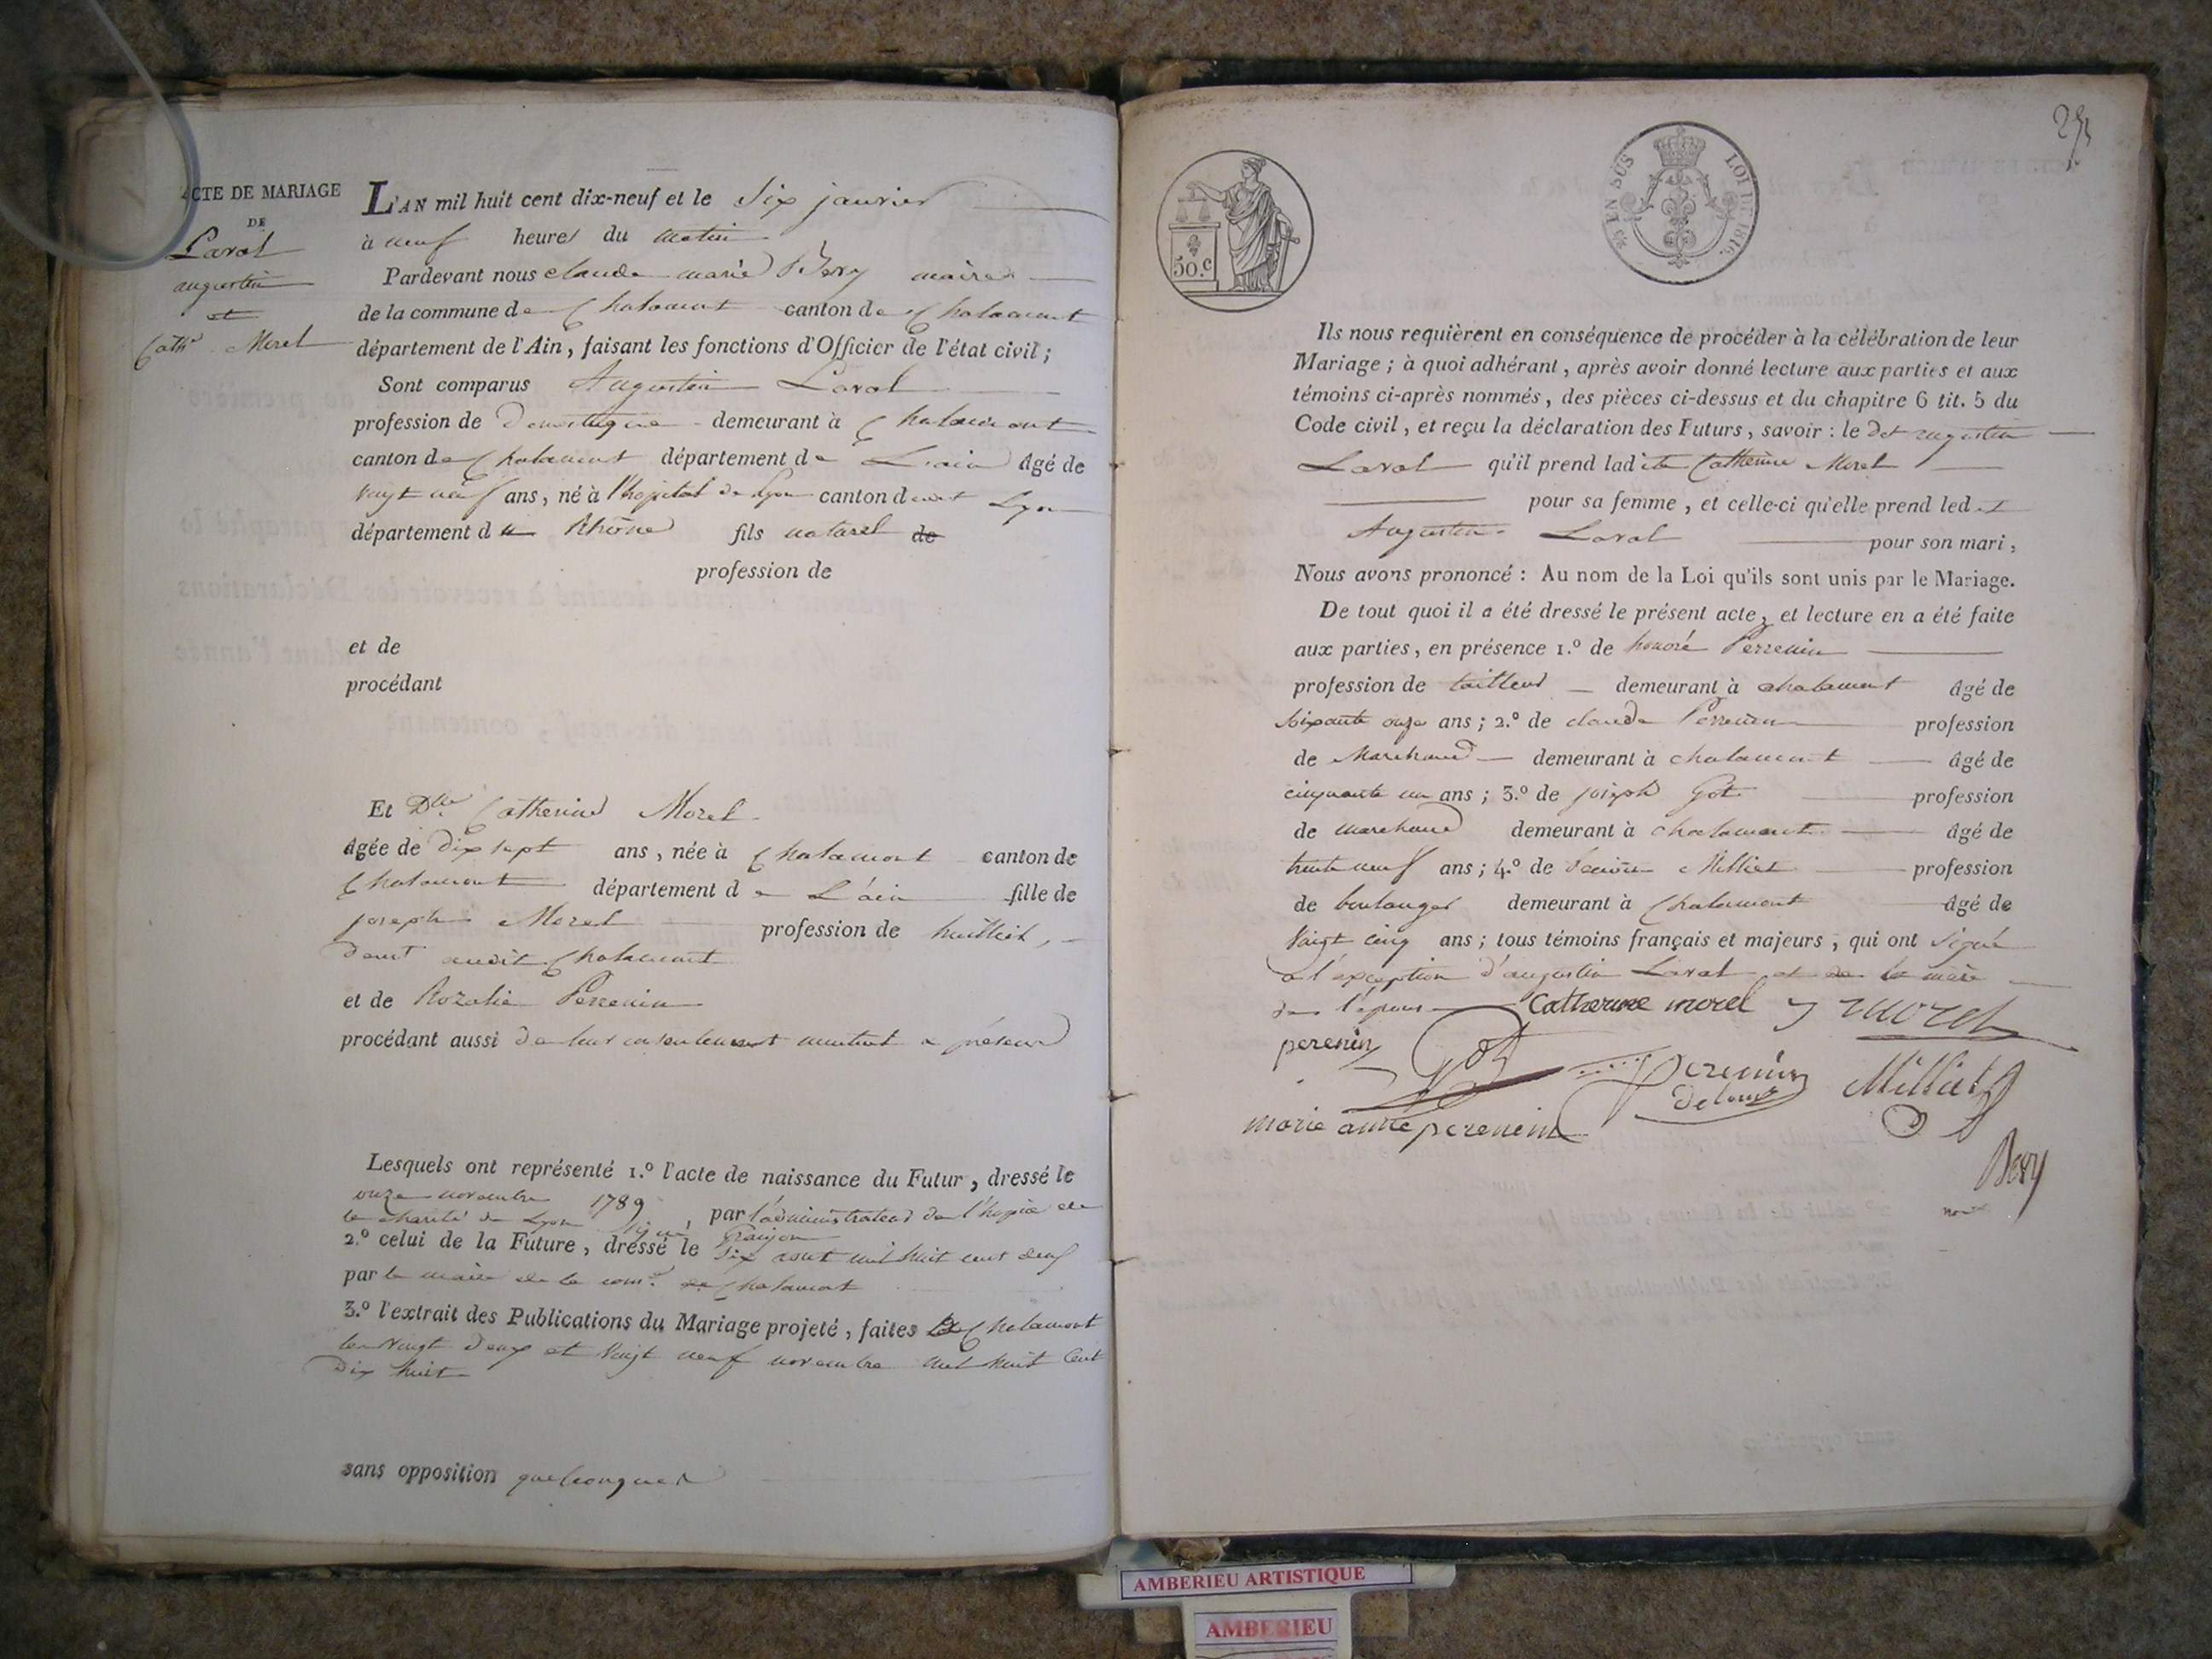 ACTE DE MARIAGE
DE
Laval
augustin
et
Cathe Morel
L'AN mil huit cent dix-neuf et le Six janvier
à neuf heures du matin
Pardevant nous claude marie Bery maire
de la commune de Chalamont canton de Chalamont
département de l'Ain, faisant les fonctions d'Officier de l'état civil;
Sont comparus Augustin Laval
profession de Domestique demeurant à Chalamont
canton de Chalamont département de L'ain âgé de
vingt neuf ans, né à l'hopital de Lyon canton dudit Lyon
département du Rhône fils naturel de
profession de
et de
procédant
Et Dlle Catherine Morel
âgée de dix sept ans, née à Chalamont canton de
Chalamont département de L'ain fille de
joseph Morel profession de huillier,
demt audit Chalamont
et de Rozalie Perrenin
procédant aussi de leur consentement mutuel a présent
Lesquels ont représenté 1.º l'acte de naissance du Futur, dressé le
onze novembre 1789, par l'administrateur de l'hospice de
la charité de Lyon signé
2.º celui de la Future, dressé le six aout mil huit cent deux
par le maire de la come de Chalamont
3.º l'extrait des Publications du Mariage projeté, faites à Chalamont
les vingt deux et vingt neuf novembre mil huit cent
dix huit
sans opposition quelconque
50.c
EN SUS
LOI DE 1816.
Ils nous requièrent en conséquence de procéder à la célébration de leur
Mariage; à quoi adhérant, après avoir donné lecture aux parties et aux
témoins ci-après nommés, des pièces ci-dessus et du chapitre 6 tit. 5 du
Code civil, et reçu la déclaration des Futurs, savoir: le dt augustin
Laval qu'il prend ladite Catherine Morel
pour sa femme, et celle-ci qu'elle prend ledt
Augustin Laval pour son mari,
Nous avons prononcé: Au nom de la Loi qu'ils sont unis par le Mariage.
De tout quoi il a été dressé le présent acte, et lecture en a été faite
aux parties, en présence 1.º de honoré Perrenin
profession de tailleur demeurant à chalamont âgé de
soixante onze ans; 2.º de claude Perrenin profession
de Marchand demeurant à chalamont âgé de
cinquante un ans; 3.º de joseph Got profession
de marchand demeurant à chalamont âgé de
trente neuf ans; 4.º de Milliet profession
de boulanger demeurant à Chalamont âgé de
vingt cinq ans; tous témoins français et majeurs, qui ont signé
a l'exception d'augustin Laval et de la mère
de l'épouse Catherine morel J morel
perenin Got perenin Milliet
marie anne perenin
Bery
AMBERIEU ARTISTIQUE
AMBERIEU